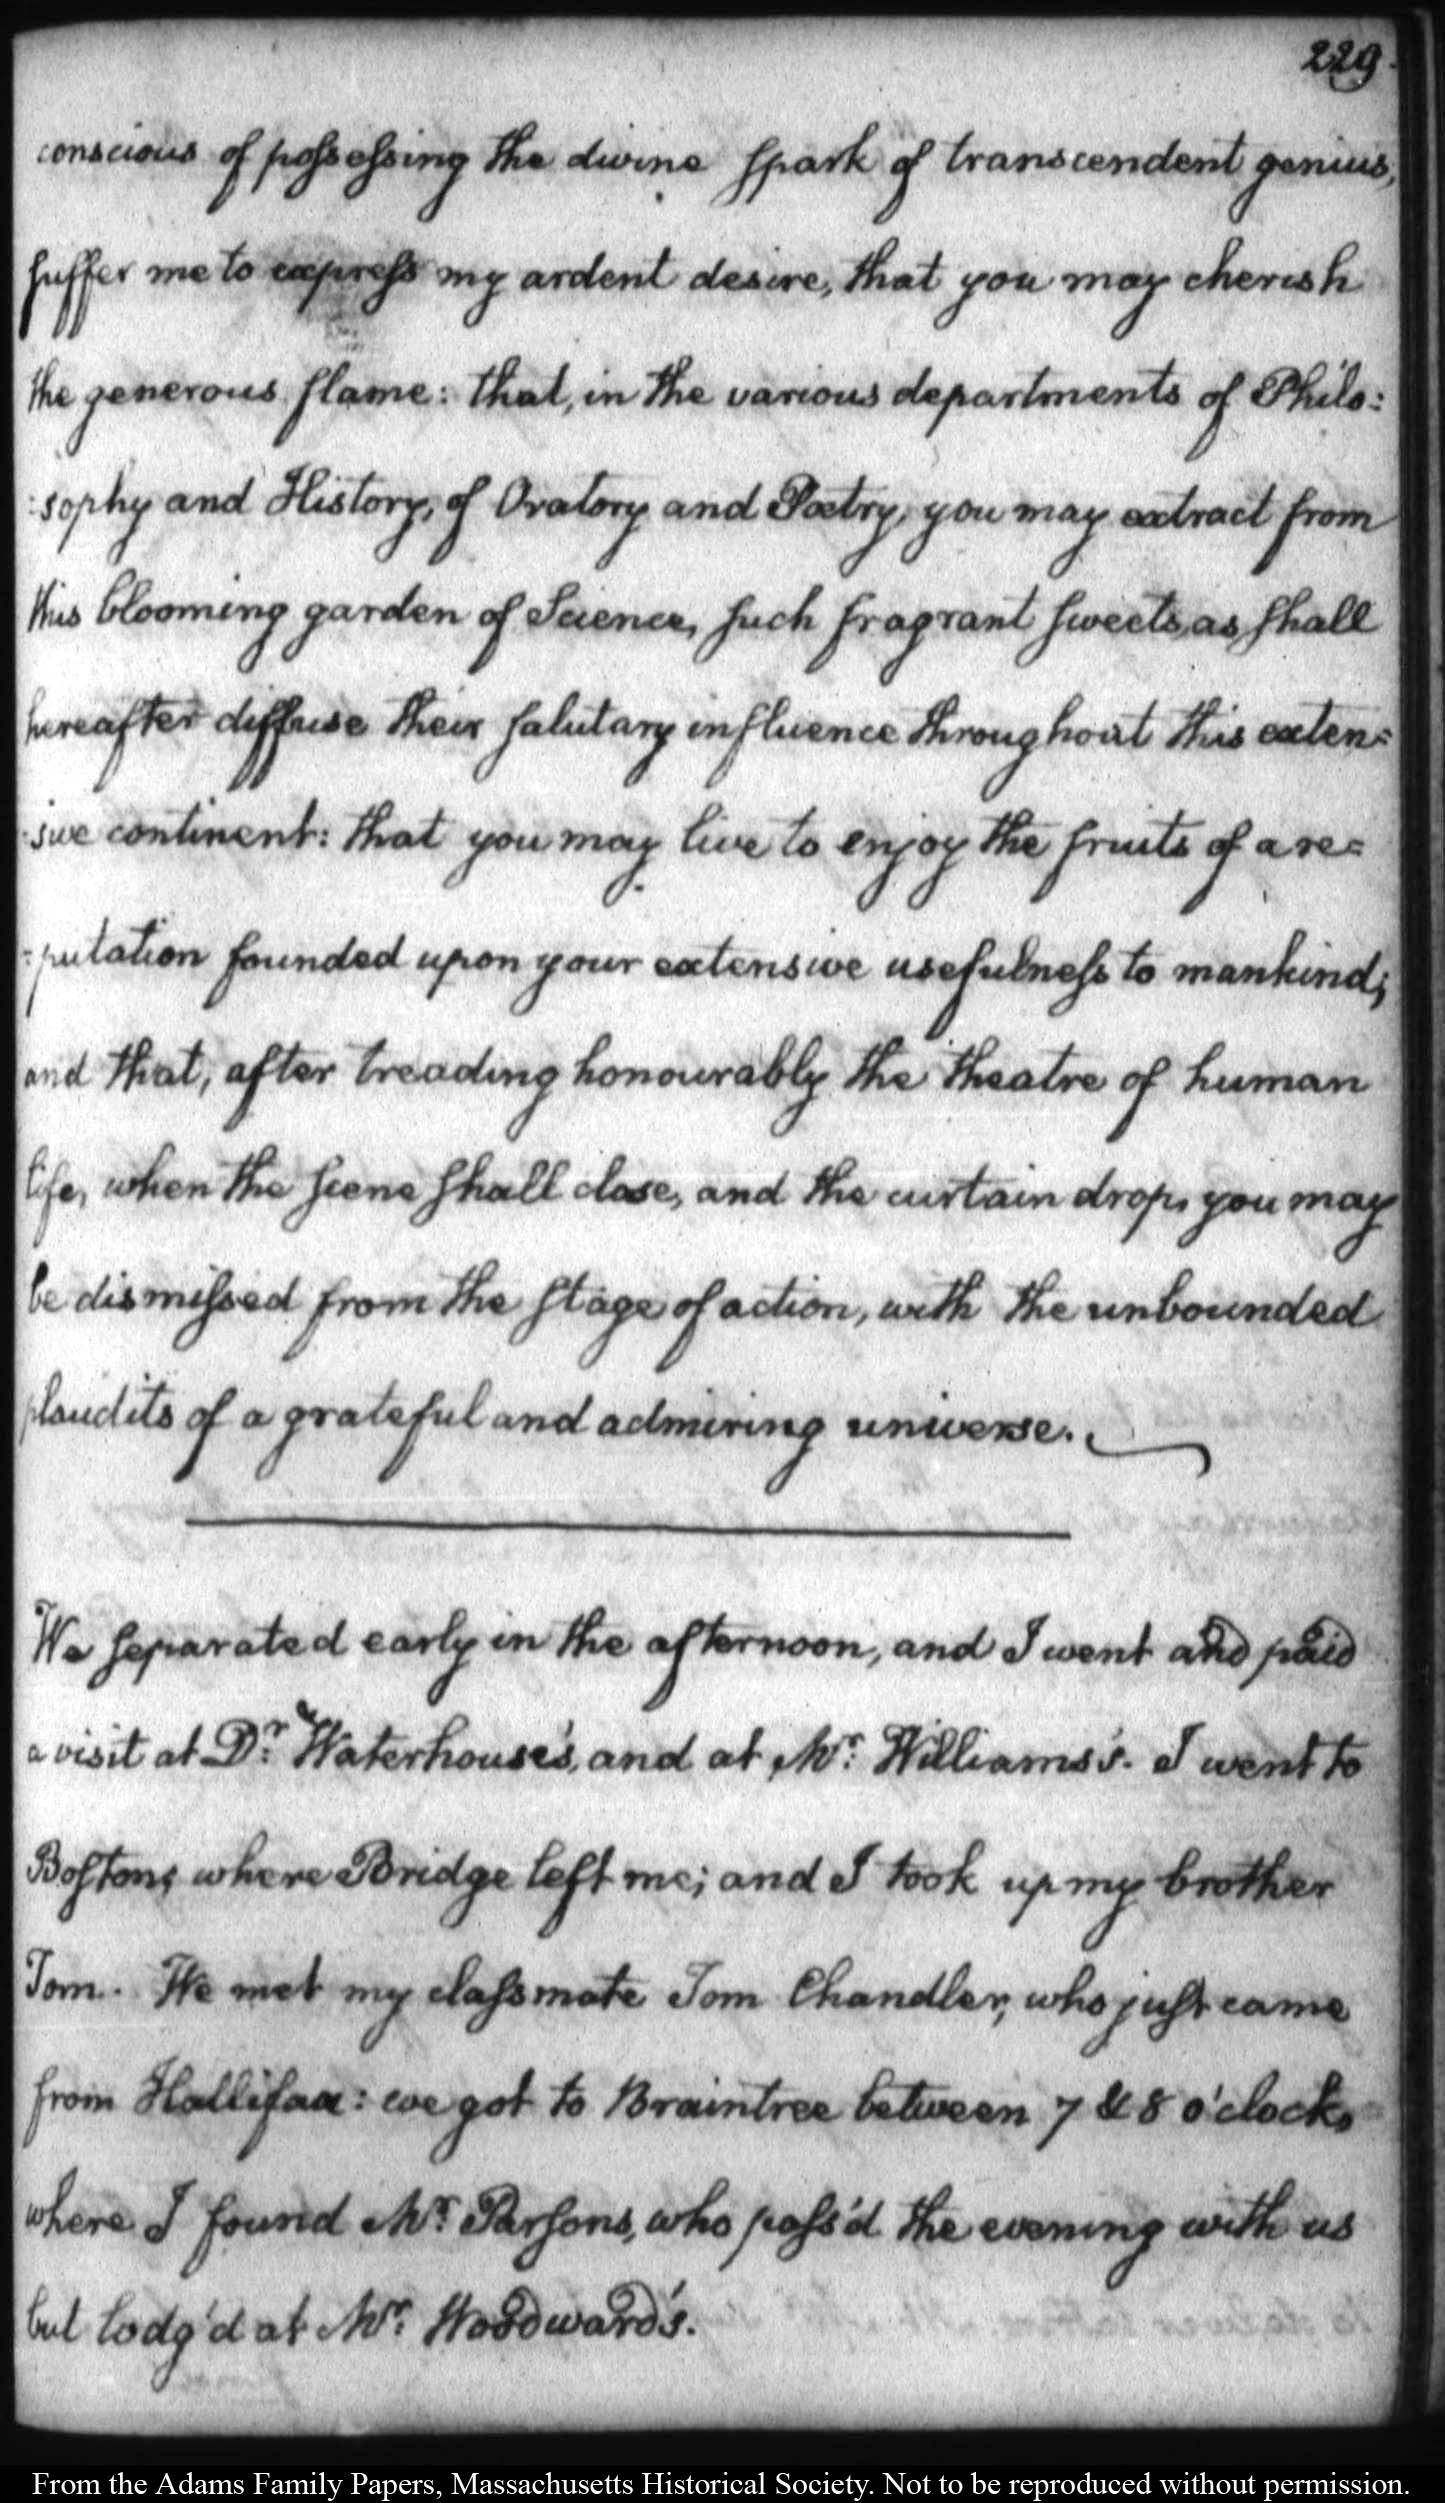 229.
conscious of possessing the divine spark of transcendent genius,
suffer me to express my ardent desire, that you may cherish
the generous flame: that, in the various departments of Philo:
:sophy and History, of Oratory and Poetry, you may extract from
this blooming garden of Science, such fragrant sweets, as shall
hereafter diffuse their salutary influence throughout this exten=
:sive continent: that you may live to enjoy the fruits of a re=
=putation founded upon your extensive usefulness to mankind;
and that, after treading honourably the theatre of human
life, when the scene shall close, and the curtain drop, you may
be dismissed from the stage of action, with the unbounded
plaudits of a grateful and admiring universe.
We separated early in the afternoon, and I went and paid
a visit at Dr: Waterhouse's, and at Mr: Williams's. I went to
Boston; where Bridge left me; and I took up my brother
Tom. We met my classmate Tom Chandler, who just came
from Hallifax: we got to Braintree between 7 & 8 o'clock,
where I found Mr: Parsons, who pass'd the evening with us
but lodg'd at Mr: Woodward's.
From the Adams Family Papers, Massachusetts Historical Society. Not to be reproduced without permission.